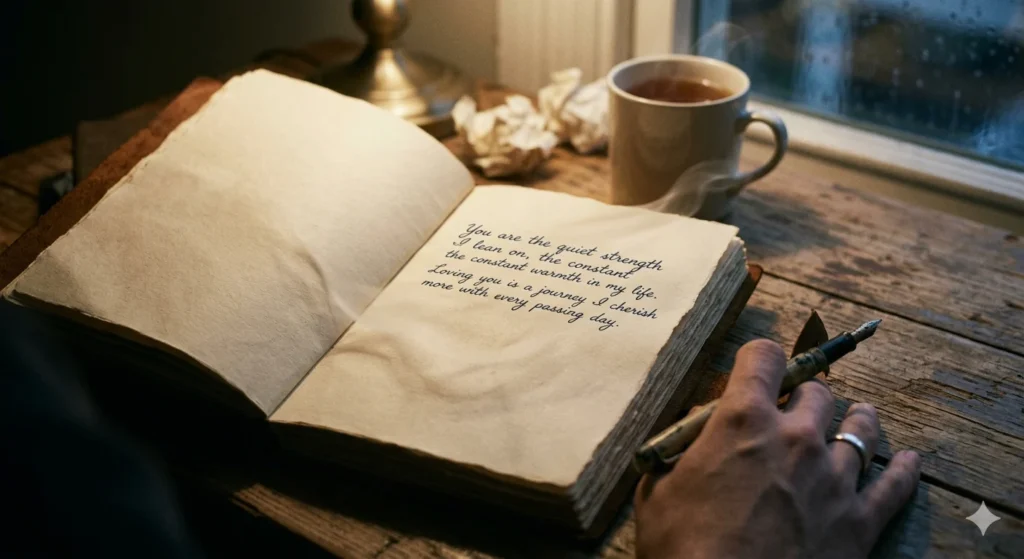 You are the quiet strength
I lean on, the constant
the constant warmth in my life.
Loving you is a journey I cherish
more with every passing day.